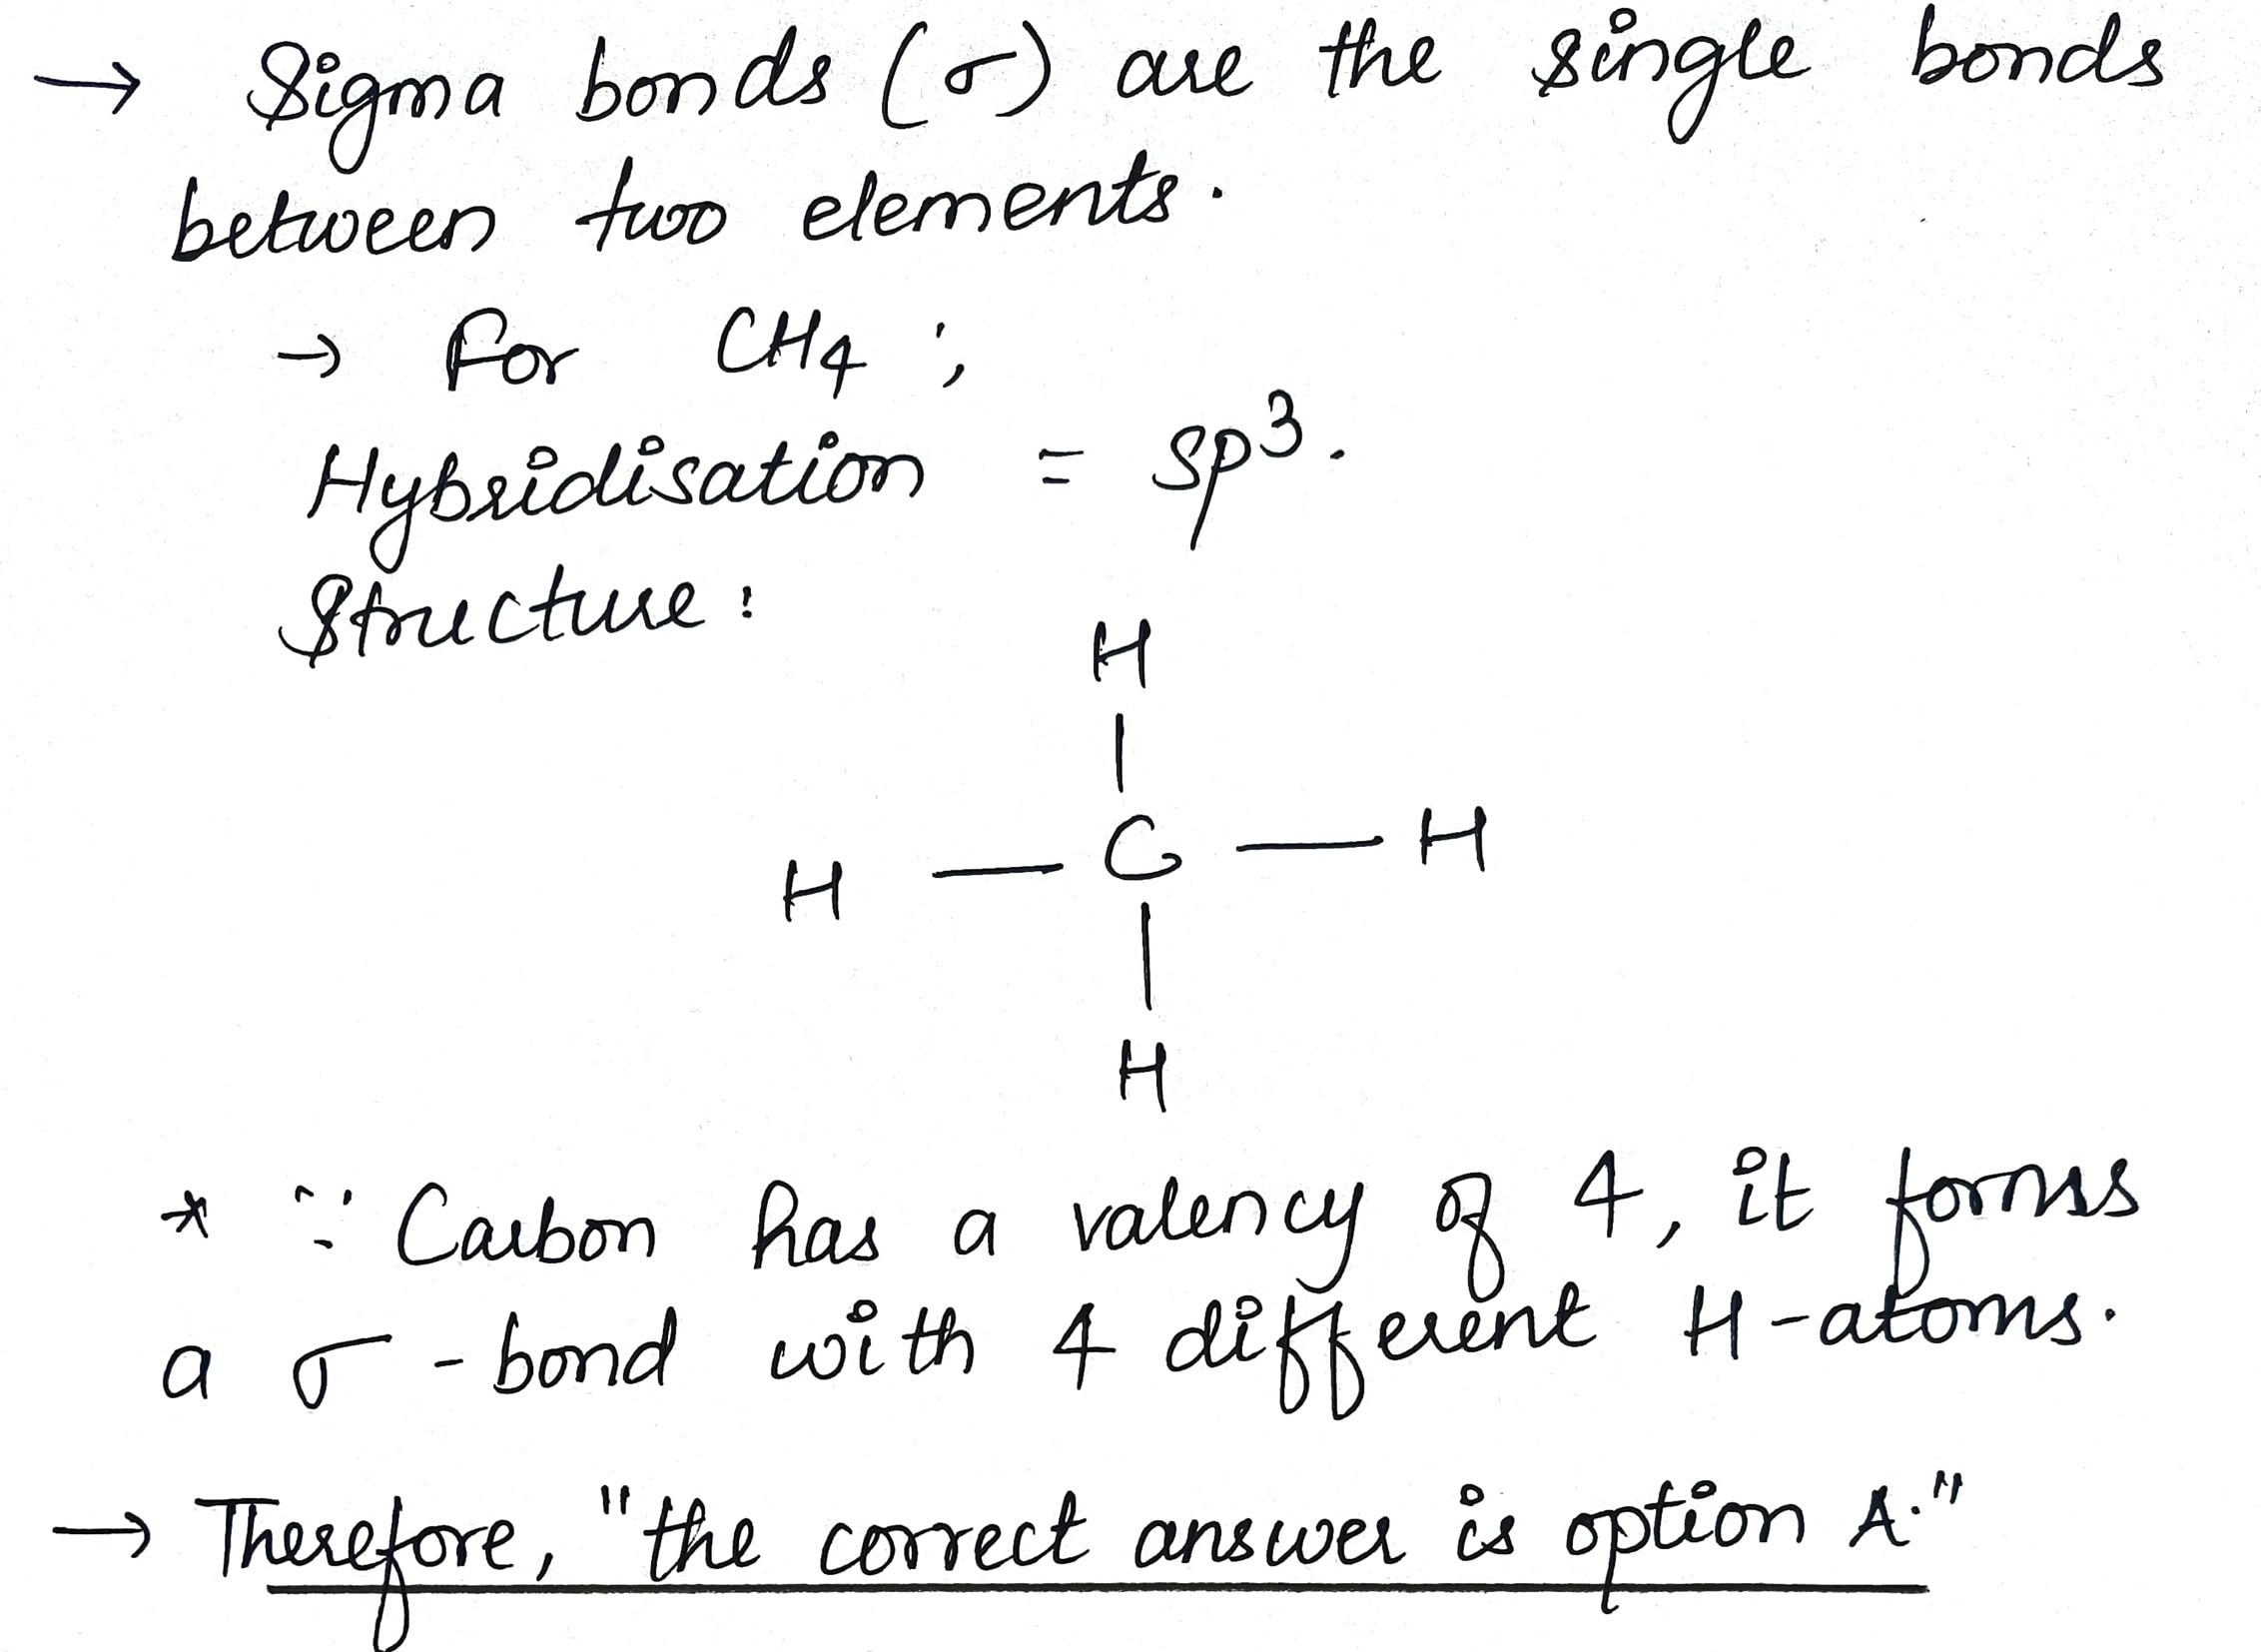 → Sigma bonds (σ) are the single bonds
between two elements.
→ For CH4 ;
Hybridisation = sp³.
Structure:
H
|
H — C — H
|
H
* ∵ Carbon has a valency of 4, it formss
a σ-bond with 4 different H-atoms.
→ Therefore, "the correct answer is option A."